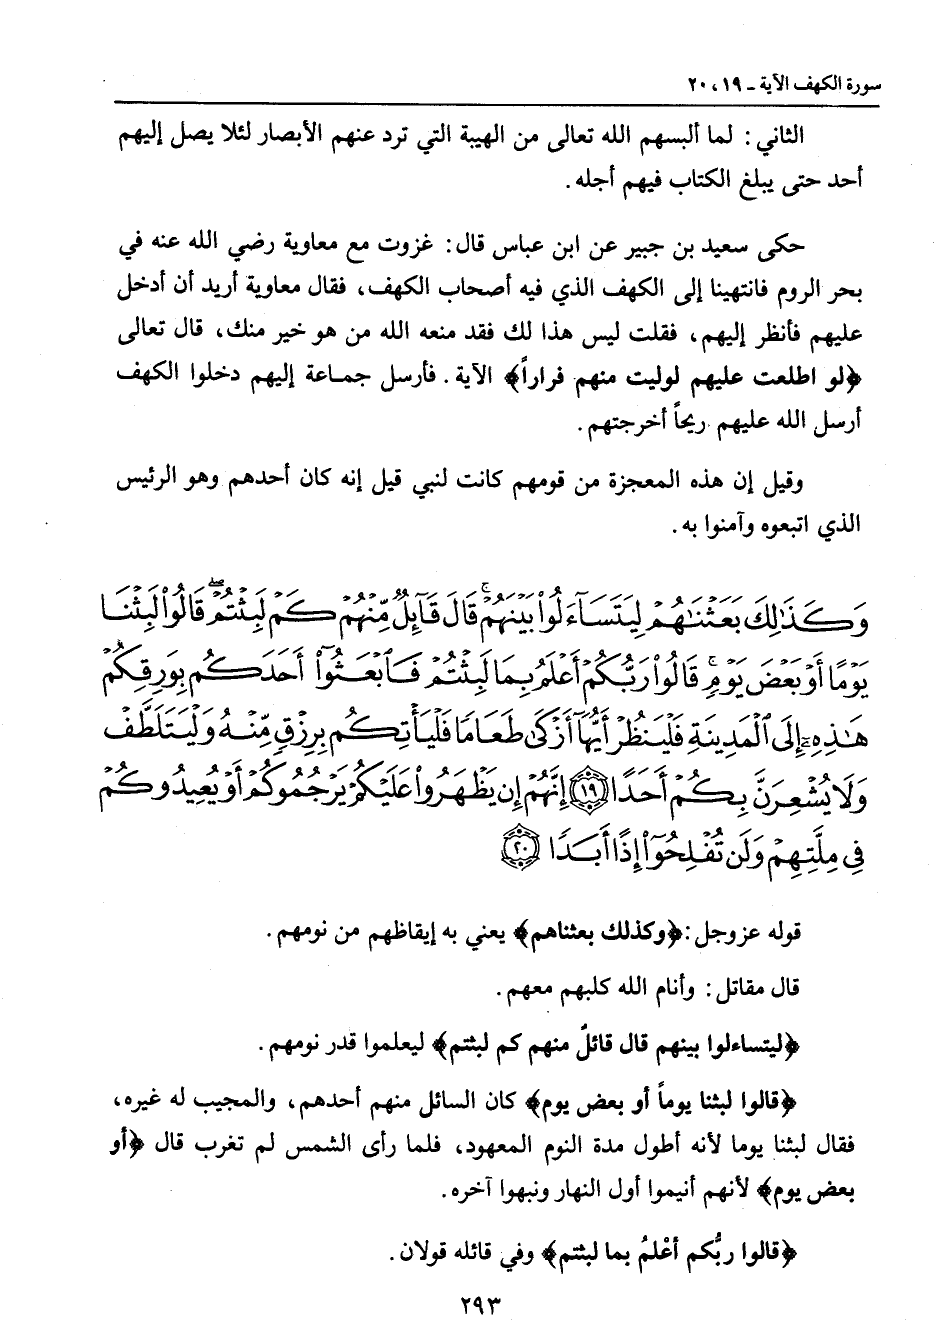 سورة الكهف الآية ـ ١٩ ، ٢٠
الثاني : لما ألبسهم الله تعالى من الهيبة التي ترد عنهم الأبصار لئلا يصل إليهم
أحد حتى يبلغ الكتاب فيهم أجله .
حكى سعيد بن جبير عن ابن عباس قال : غزوت مع معاوية رضي الله عنه في
بحر الروم فانتهينا إلى الكهف الذي فيه أصحاب الكهف، فقال معاوية أريد أن أدخل
عليهم فأنظر إليهم، فقلت ليس هذا لك فقد منعه الله من هو خير منك، قال تعالى
﴿لو اطلعت عليهم لوليت منهم فراراً﴾ الآية . فأرسل جماعة إليهم دخلوا الكهف
أرسل الله عليهم ريحاً أخرجتهم .
وقيل إن هذه المعجزة من قومهم كانت لنبي قيل إنه كان أحدهم وهو الرئيس
الذي اتبعوه وآمنوا به .
وَكَذَٰلِكَ بَعَثْنَٰهُمْ لِيَتَسَآءَلُوا۟ بَيْنَهُمْ ۚ قَالَ قَآئِلٌ مِّنْهُمْ كَمْ لَبِثْتُمْ ۖ قَالُوا۟ لَبِثْنَا
يَوْمًا أَوْ بَعْضَ يَوْمٍ ۚ قَالُوا۟ رَبُّكُمْ أَعْلَمُ بِمَا لَبِثْتُمْ فَٱبْعَثُوٓا۟ أَحَدَكُم بِوَرِقِكُمْ
هَٰذِهِۦٓ إِلَى ٱلْمَدِينَةِ فَلْيَنظُرْ أَيُّهَآ أَزْكَىٰ طَعَامًا فَلْيَأْتِكُم بِرِزْقٍ مِّنْهُ وَلْيَتَلَطَّفْ
وَلَا يُشْعِرَنَّ بِكُمْ أَحَدًا ١٩ إِنَّهُمْ إِن يَظْهَرُوا۟ عَلَيْكُمْ يَرْجُمُوكُمْ أَوْ يُعِيدُوكُمْ
فِى مِلَّتِهِمْ وَلَن تُفْلِحُوٓا۟ إِذًا أَبَدًا ٢٠
قوله عز وجل : ﴿وكذلك بعثناهم﴾ يعني به إيقاظهم من نومهم .
قال مقاتل : وأنام الله كلبهم معهم .
﴿ليتساءلوا بينهم قال قائلٌ منهم كم لبثتم﴾ ليعلموا قدر نومهم .
﴿قالوا لبثنا يوماً أو بعض يوم﴾ كان السائل منهم أحدهم، والمجيب له غيره،
فقال لبثنا يوما لأنه أطول مدة النوم المعهود، فلما رأى الشمس لم تغرب قال ﴿أو
بعض يوم﴾ لأنهم أنيموا أول النهار ونبهوا آخره .
﴿قالوا ربُّكم أعْلمُ بما لبثتم﴾ وفي قائله قولان .
٢٩٣